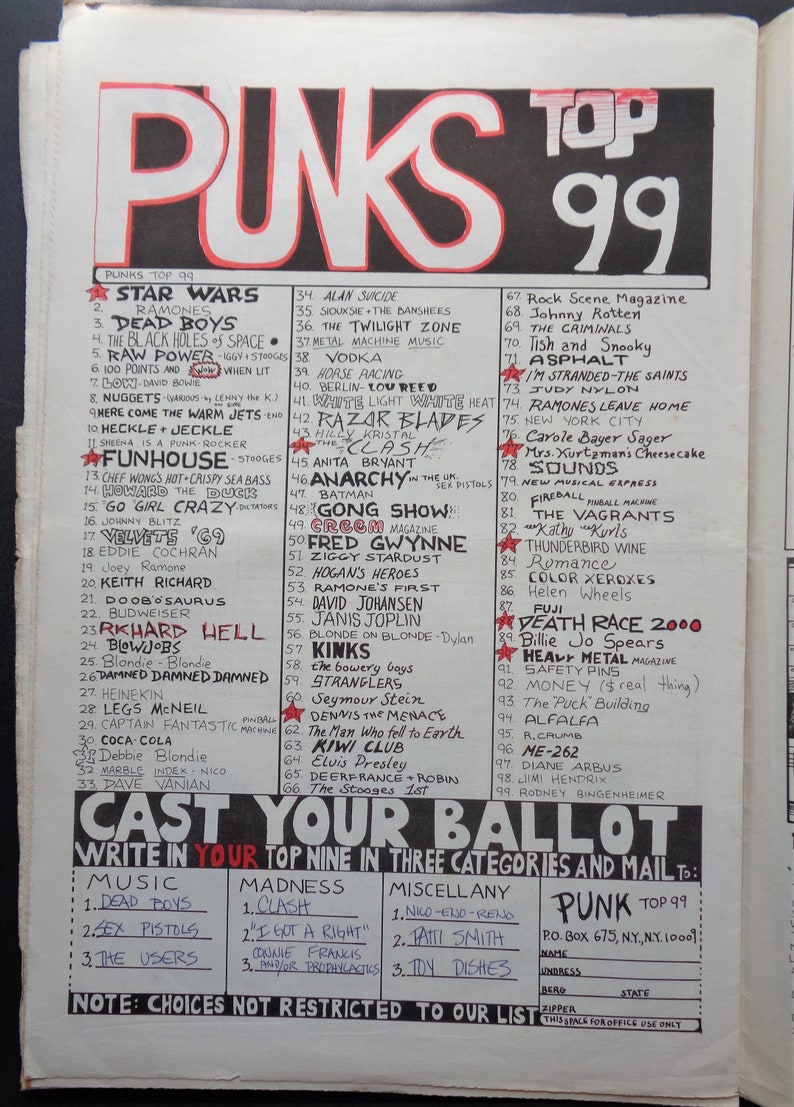 PUNKS TOP 99
PUNKS TOP 99
1. STAR WARS
2. RAMONES
3. DEAD BOYS
4. THE BLACK HOLES OF SPACE
5. RAW POWER - IGGY + STOOGES
6. 100 POINTS AND WOW WHEN LIT
7. LOW - DAVID BOWIE
8. NUGGETS - (VARIOUS - by LENNY the K.) ON SIRE
9. HERE COME THE WARM JETS - ENO
10. HECKLE + JECKLE
11. SHEENA IS A PUNK-ROCKER
12. FUNHOUSE - STOOGES
13. CHEF WONG'S HOT + CRISPY SEA BASS
14. HOWARD THE DUCK
15. "GO GIRL CRAZY - DICTATORS
16. JOHNNY BLITZ
17. VELVETS '69
18. EDDIE COCHRAN
19. Joey Ramone
20. KEITH RICHARD
21. DOOB'O'SAURUS
22. BUDWEISER
23. RICHARD HELL
24. BLOWJOBS
25. Blondie - Blondie
26. DAMNED DAMNED DAMNED
27. HEINEKIN
28. LEGS McNEIL
29. CAPTAIN FANTASTIC PINBALL MACHINE
30. COCA-COLA
31. Debbie Blondie
32. MARBLE INDEX - NICO
33. DAVE VANIAN
34. ALAN SUICIDE
35. SIOUXSIE + THE BANSHEES
36. THE TWILIGHT ZONE
37. METAL MACHINE MUSIC
38. VODKA
39. HORSE RACING
40. BERLIN - LOU REED
41. WHITE LIGHT WHITE HEAT
42. RAZOR BLADES
43. HILLY KRISTAL
44. THE CLASH
45. ANITA BRYANT
46. ANARCHY IN THE U.K. SEX PISTOLS
47. BATMAN
48. GONG SHOW
49. CREEM MAGAZINE
50. FRED GWYNNE
51. ZIGGY STARDUST
52. HOGAN'S HEROES
53. RAMONE'S FIRST
54. DAVID JOHANSEN
55. JANIS JOPLIN
56. BLONDE ON BLONDE - Dylan
57. KINKS
58. the bowery boys
59. STRANGLERS
60. Seymour Stein
61. DENNIS THE MENACE
62. The Man Who fell to Earth
63. KIWI CLUB
64. Elvis Presley
65. DEERFRANCE + ROBIN
66. The Stooges 1st
67. Rock Scene Magazine
68. Johnny Rotten
69. THE CRIMINALS
70. Tish and Snooky
71. ASPHALT
72. I'M STRANDED - THE SAINTS
73. JUDY NYLON
74. RAMONES LEAVE HOME
75. NEW YORK CITY
76. Carole Bayer Sager
77. Mrs. Kurtzman's Cheesecake
78. SOUNDS
79. NEW MUSICAL EXPRESS
80. FIREBALL PINBALL MACHINE
81. THE VAGRANTS
82. Kathy Kurls
83. THUNDERBIRD WINE
84. Romance
85. COLOR XEROXES
86. Helen Wheels
87. FUJI
88. DEATH RACE 2000
89. Billie Jo Spears
90. HEAVY METAL MAGAZINE
91. SAFETY PINS
92. MONEY ($ real thing)
93. The "Puck" Building
94. ALFALFA
95. R. CRUMB
96. ME-262
97. DIANE ARBUS
98. JIMI HENDRIX
99. RODNEY BINGENHEIMER
CAST YOUR BALLOT
WRITE IN YOUR TOP NINE IN THREE CATEGORIES AND MAIL To:
MUSIC
1. DEAD BOYS
2. SEX PISTOLS
3. THE USERS
MADNESS
1. CLASH
2. "I GOT A RIGHT"
3. CONNIE FRANCIS AND/OR PROPHYLACTICS
MISCELLANY
1. NICO-ENO-RENO
2. PATTI SMITH
3. TOY DISHES
PUNK TOP 99
P.O. BOX 675, N.Y., N.Y. 10009
NAME
UNDRESS
BERG STATE
ZIPPER
THIS SPACE FOR OFFICE USE ONLY
NOTE: CHOICES NOT RESTRICTED TO OUR LIST